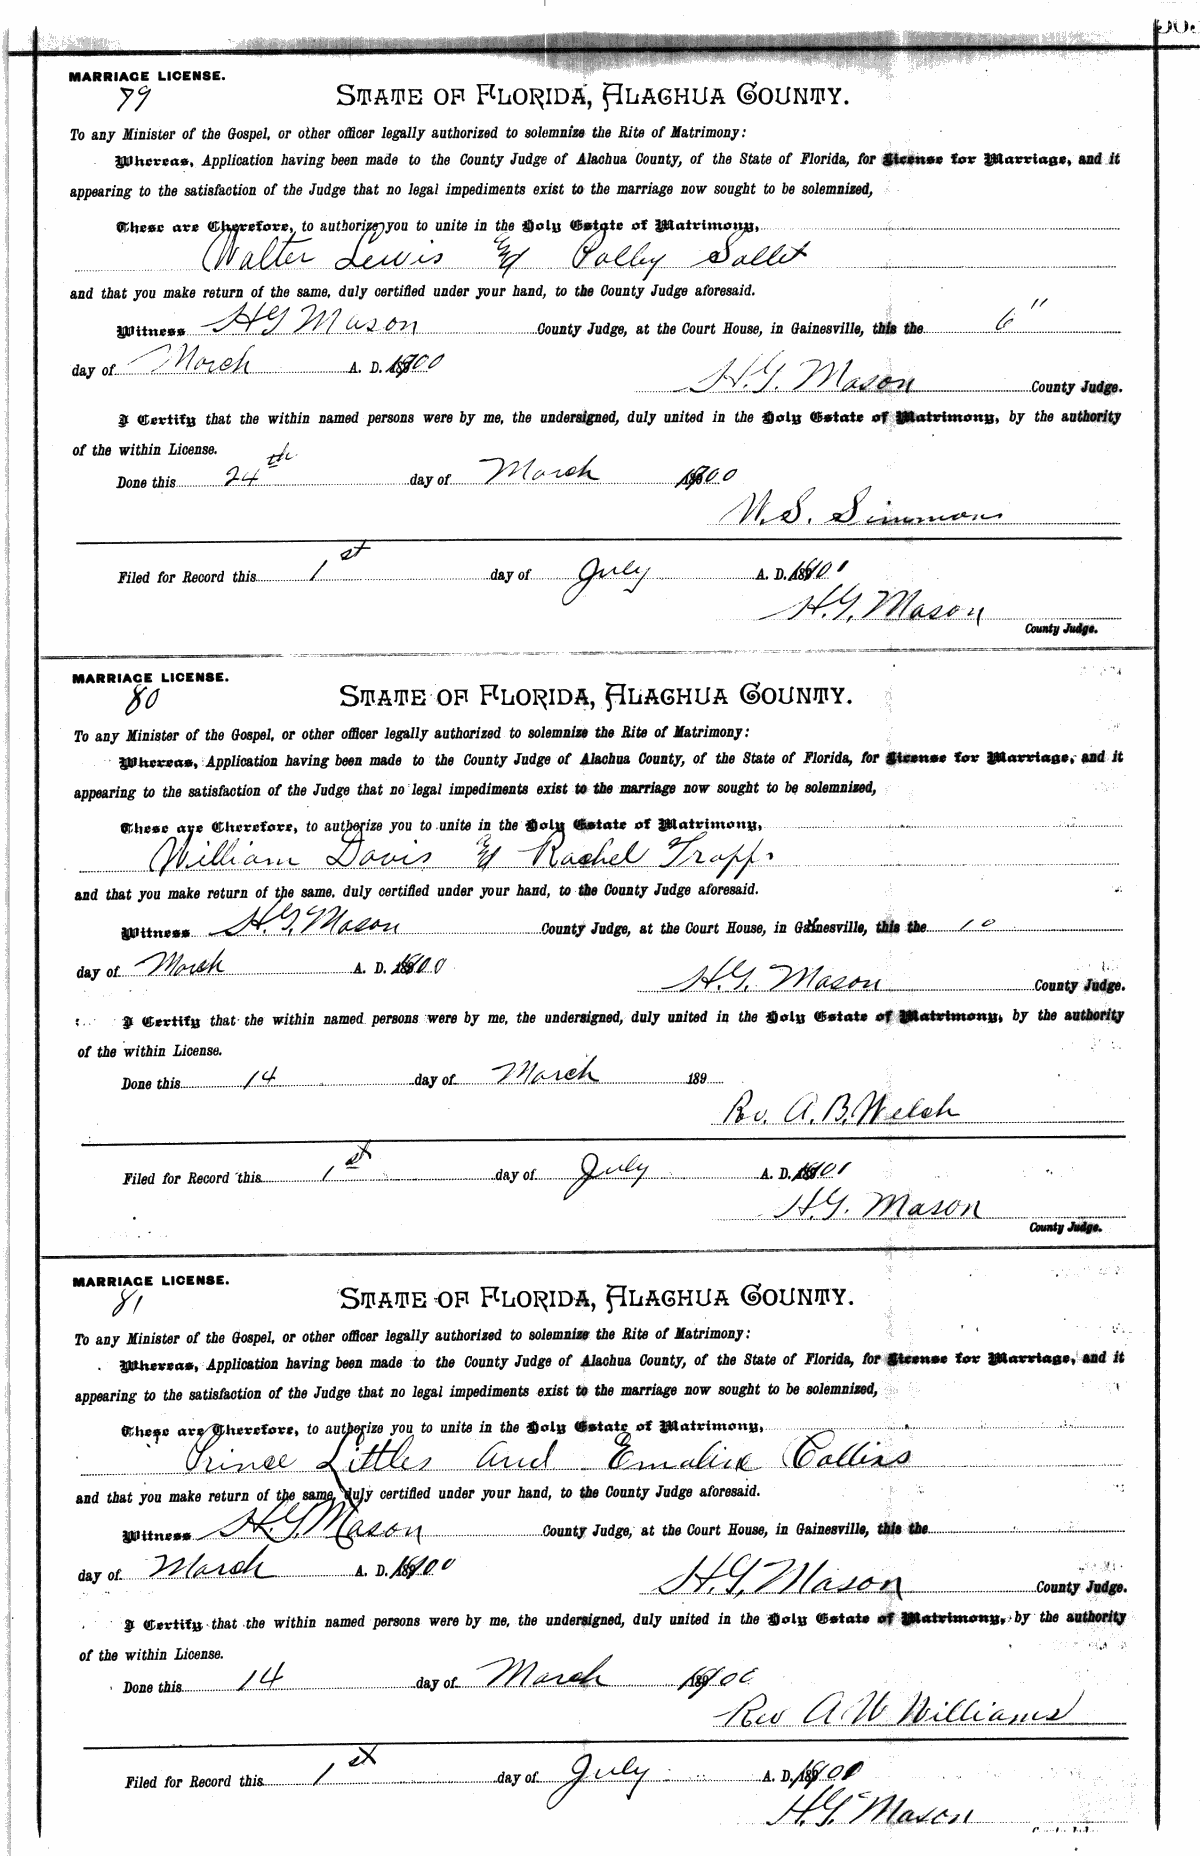 MARRIAGE LICENSE.
79
STATE OF FLORIDA, ALACHUA COUNTY.
To any Minister of the Gospel, or other officer legally authorized to solemnize the Rite of Matrimony:
Whereas, Application having been made to the County Judge of Alachua County, of the State of Florida, for License for Marriage, and it
appearing to the satisfaction of the Judge that no legal impediments exist to the marriage now sought to be solemnized,
These are Therefore, to authorize you to unite in the Holy Estate of Matrimony,
Walter Lewis & Polley Sollet
and that you make return of the same, duly certified under your hand, to the County Judge aforesaid.
Witness H G Mason County Judge, at the Court House, in Gainesville, this the 6"
day of March A. D. 1900
H. G. Mason County Judge.
I Certify that the within named persons were by me, the undersigned, duly united in the Holy Estate of Matrimony, by the authority
of the within License.
Done this 24th day of March 1900
W. S. Simmons
Filed for Record this 1st day of July A. D. 1901
H. G. Mason
County Judge.
MARRIAGE LICENSE.
80
STATE OF FLORIDA, ALACHUA COUNTY.
To any Minister of the Gospel, or other officer legally authorized to solemnize the Rite of Matrimony:
Whereas, Application having been made to the County Judge of Alachua County, of the State of Florida, for License for Marriage, and it
appearing to the satisfaction of the Judge that no legal impediments exist to the marriage now sought to be solemnized,
These are Therefore, to authorize you to unite in the Holy Estate of Matrimony,
William Davis & Rachel Trapp.
and that you make return of the same, duly certified under your hand, to the County Judge aforesaid.
Witness H. G. Mason County Judge, at the Court House, in Gainesville, this the 10
day of March A. D. 1900
H. G. Mason County Judge.
I Certify that the within named persons were by me, the undersigned, duly united in the Holy Estate of Matrimony, by the authority
of the within License.
Done this 14 day of March 189
Rev. A. B. Welch
Filed for Record this 1st day of July A. D. 1901
H. G. Mason
County Judge.
MARRIAGE LICENSE.
81
STATE OF FLORIDA, ALACHUA COUNTY.
To any Minister of the Gospel, or other officer legally authorized to solemnize the Rite of Matrimony:
Whereas, Application having been made to the County Judge of Alachua County, of the State of Florida, for License for Marriage, and it
appearing to the satisfaction of the Judge that no legal impediments exist to the marriage now sought to be solemnized,
These are Therefore, to authorize you to unite in the Holy Estate of Matrimony,
Prince Littles and Emaline Collins
and that you make return of the same, duly certified under your hand, to the County Judge aforesaid.
Witness H. G. Mason County Judge, at the Court House, in Gainesville, this the
day of March A. D. 1900
H. G. Mason County Judge.
I Certify that the within named persons were by me, the undersigned, duly united in the Holy Estate of Matrimony, by the authority
of the within License.
Done this 14 day of March 1900
Rev A W Williams
Filed for Record this 1st day of July A. D. 1901
H. G. Mason